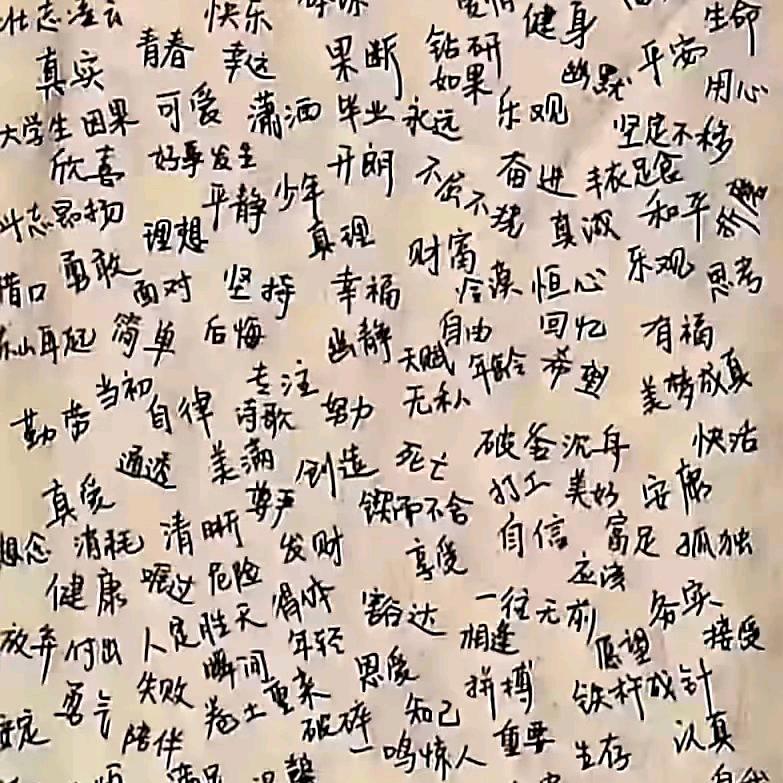 壮志凌云 快乐 健身 生命
真实 青春 幸运 果断 钻研 如果 幽默 平安 用心
大学生 因果 可爱 潇洒 毕业 永远 乐观 坚定不移
欣喜 好事发生 开朗 不屈不挠 奋进 丰衣足食
斗志昂扬 理想 平静 少年 真理 真诚 和平
借口 勇敢 面对 坚持 幸福 财富 冷漠 恒心 乐观 思考
东山再起 简单 后悔 幽静 自由 回忆 有福
当初 专注 天赋 年龄 希望 美梦成真
勤劳 自律 诗歌 努力 无私
通透 美满 创造 死亡 破釜沉舟 快活
真爱 尊严 锲而不舍 打工 美好 安康
想念 消耗 清晰 发财 享受 自信 富足 孤独
健康 危险 得体 豁达 一往无前 应该 务实
放弃 付出 人定胜天 年轻 相逢 愿望 接受
失败 瞬间 恩爱 拼搏 铁杵成针
勇气 卷土重来 知己
陪伴 破碎 一鸣惊人 重要 生存 认真